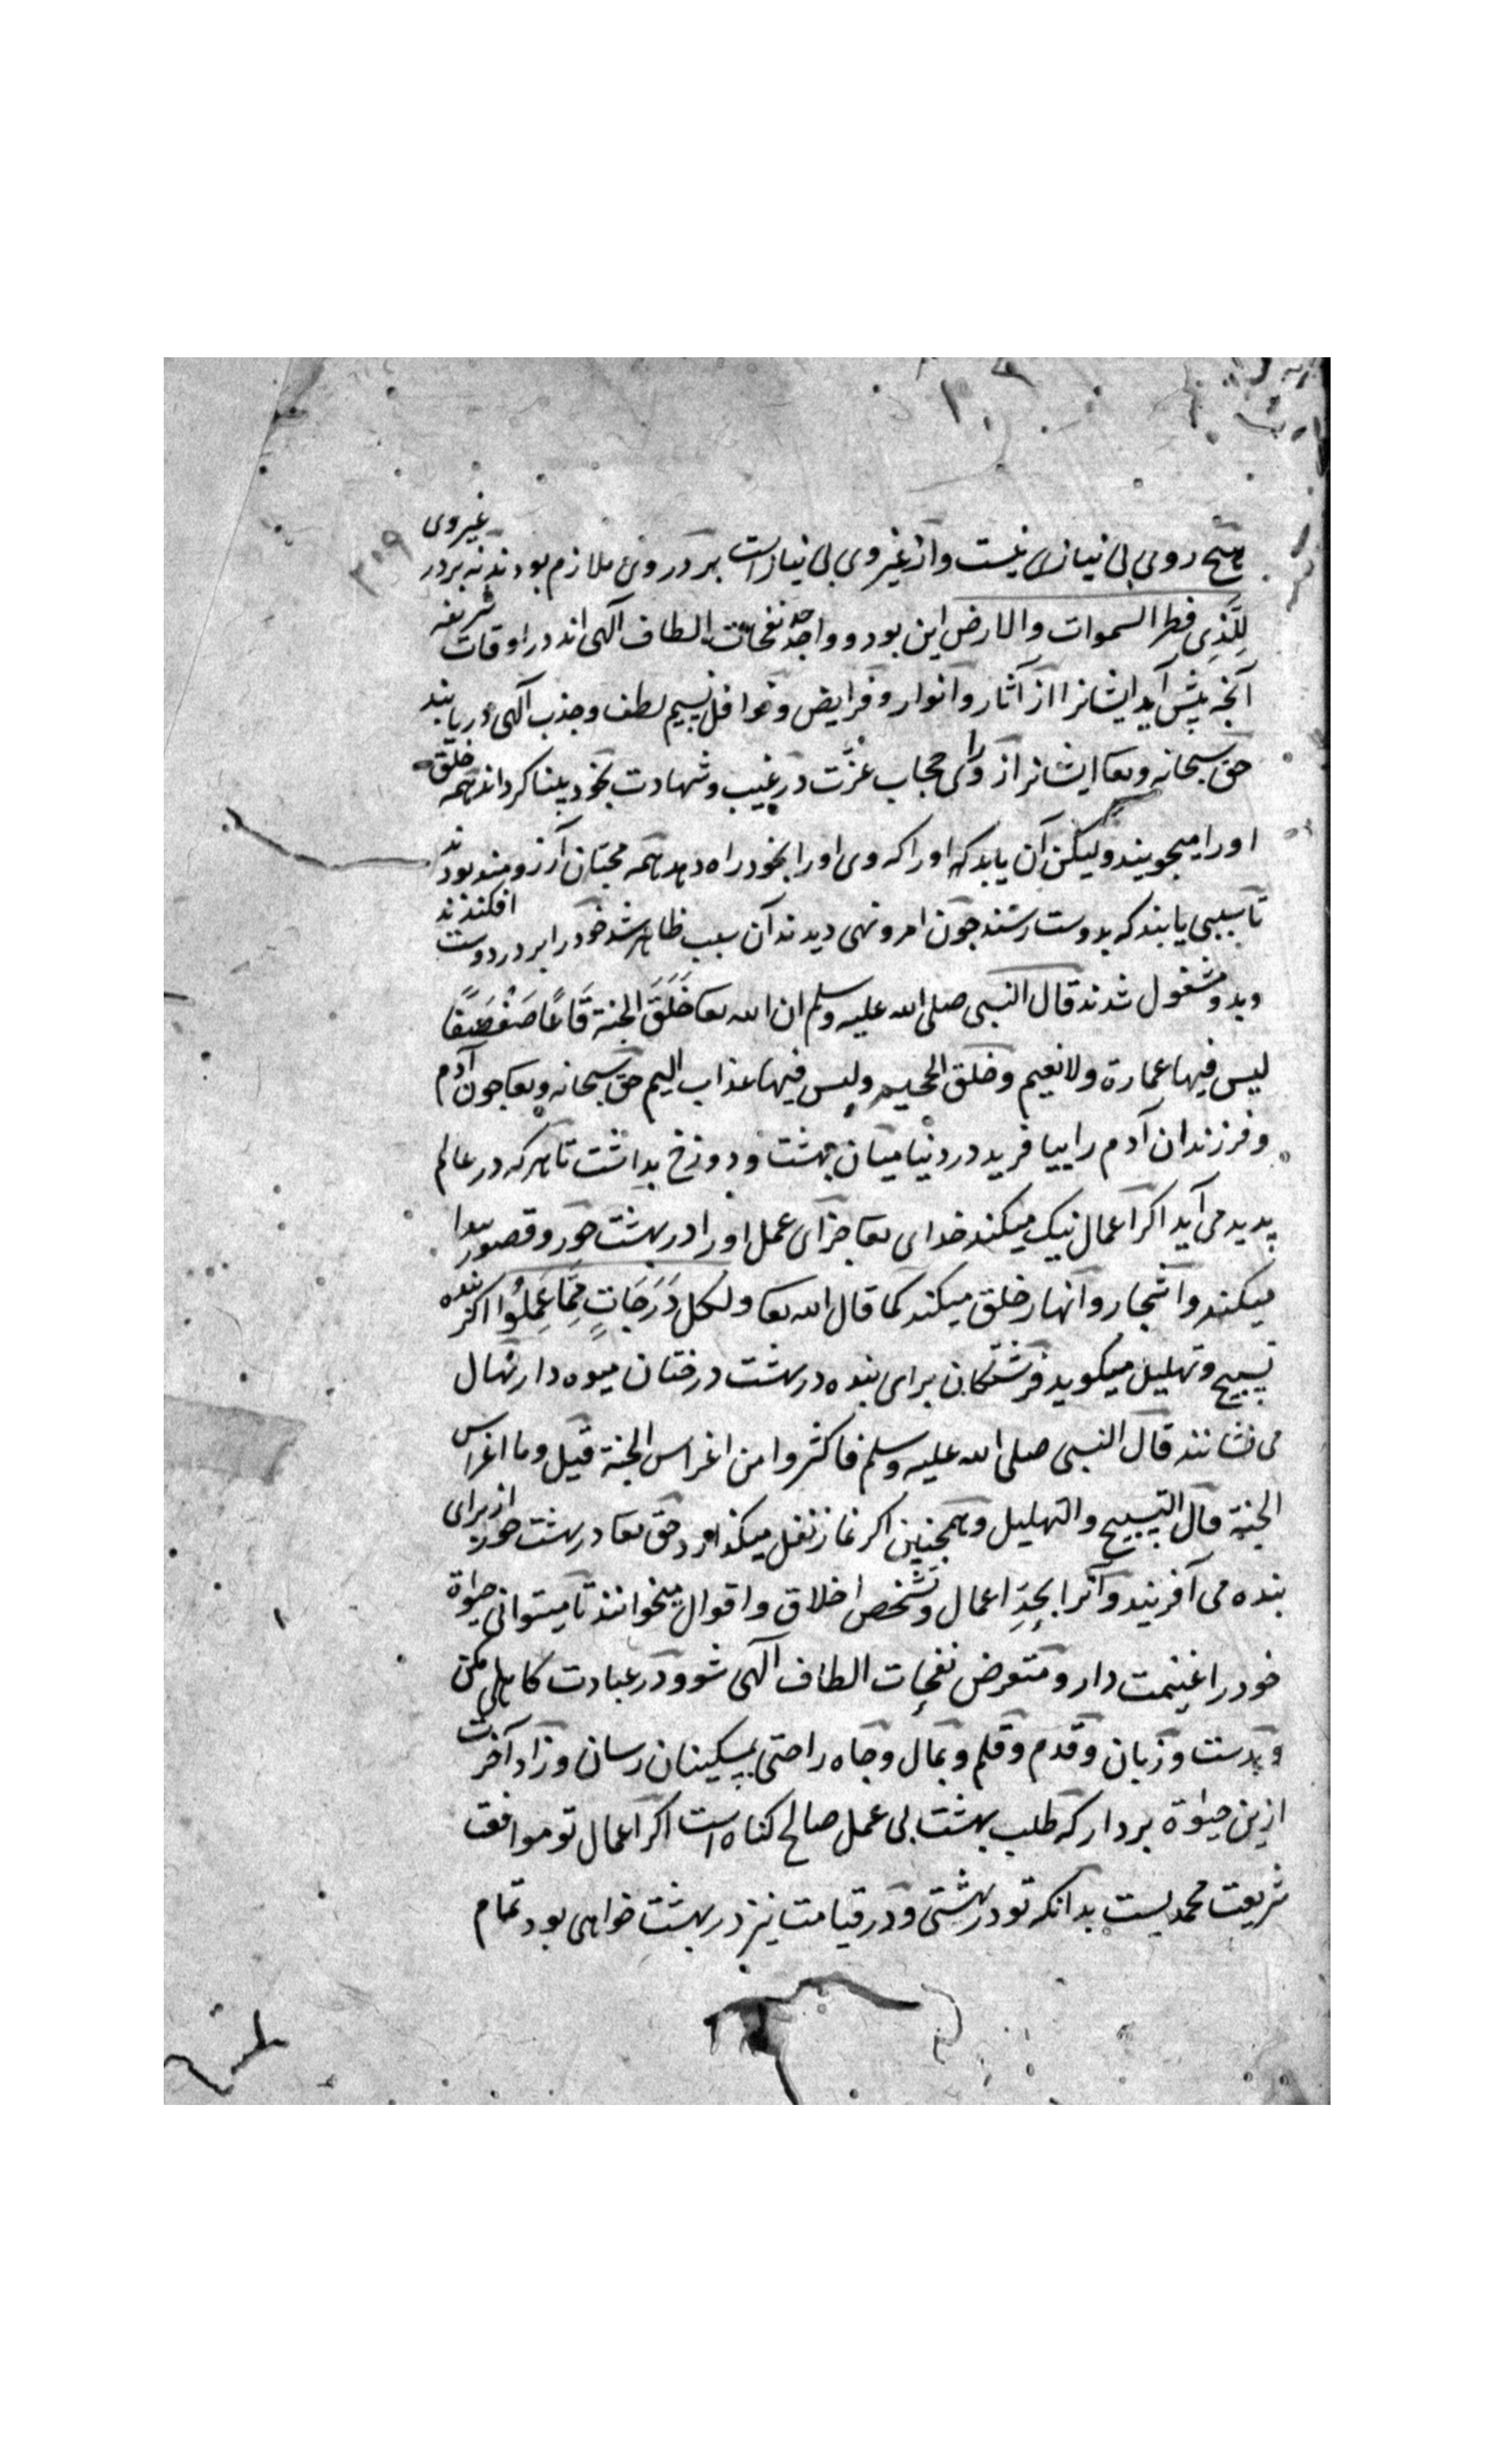 هیچ روی بی نیازی نیست واز غیر وی بی نیازاست بر در وی ملازم بودند نه بر در غیر وی
للذی فطر السموات والارض این بود وواجد نفحات الطاف آلهی اند در اوقات شریفه
آنچه پیش آید ایشانرا از آثار وانوار وفرایض ونوافل نسیم لطف وجذب آلهی دریابند
حق سبحانه وتعا ایشانرا از ورای حجاب عزت در غیب وشهادت بخود بینا کرداند همه خلق
اورا میجویند ولیکن آن یابد که اورا که وی اورا بخود راه دهد همه محبان آرزومند بودند
تا سببی یابند که بدوست رسند چون امر ونهی دیدند آن سبب ظاهر شد خودرا بر در دوست افکندند
وبدو مشغول شدند قال النبی صلی الله علیه وسلم ان الله تعا خَلَقَ الجنة قَاعًا صَفْصَفًا
لیس فیها عمارة ولا نعیم وخلق الجحیم ولیس فیها عذاب الیم حق سبحانه وتعا چون آدم
وفرزندان آدم را بیافرید در دنیا میان بهشت ودوزخ بداشت تا هرکه در عالم
پدید می آید اکر اعمال نیک میکند خدای تعا جزای عمل اورا در بهشت حور وقصور پیدا
میکند واشجار وانهار خلق میکند کما قال الله تعا ولکل دَرَجَاتٍ مِمَّا عَمِلُوا اکر بنده
تسبیح وتهلیل میکوید فرشتکان برای بنده در بهشت درختان میوه دار نهال
می نشانند قال النبی صلی الله علیه وسلم فاکثروا من اغراس الجنة قیل وما اغراس
الجنة قال التسبیح والتهلیل وهمچنین اکر نماز نفل میکذارد حق تعا در بهشت حور از برای
بنده می آفریند وآنرا تجسد اعمال وتشخص اخلاق واقوال میخوانند تا میتوانی حیوة
خودرا غنیمت دار ومتعرض نفحات الطاف آلهی شو ودر عبادت کاهلی مکن
وبدست وزبان وقدم وقلم وبمال وجاه راحتی بمسکینان رسان وزاد آخرت
ازین حیوة بردار که طلب بهشت بی عمل صالح کناه است اکر اعمال تو موافق
شریعت محمدیست بدانکه تو در بهشتی ودر قیامت نیز در بهشت خواهی بود تمام
۳۰۹